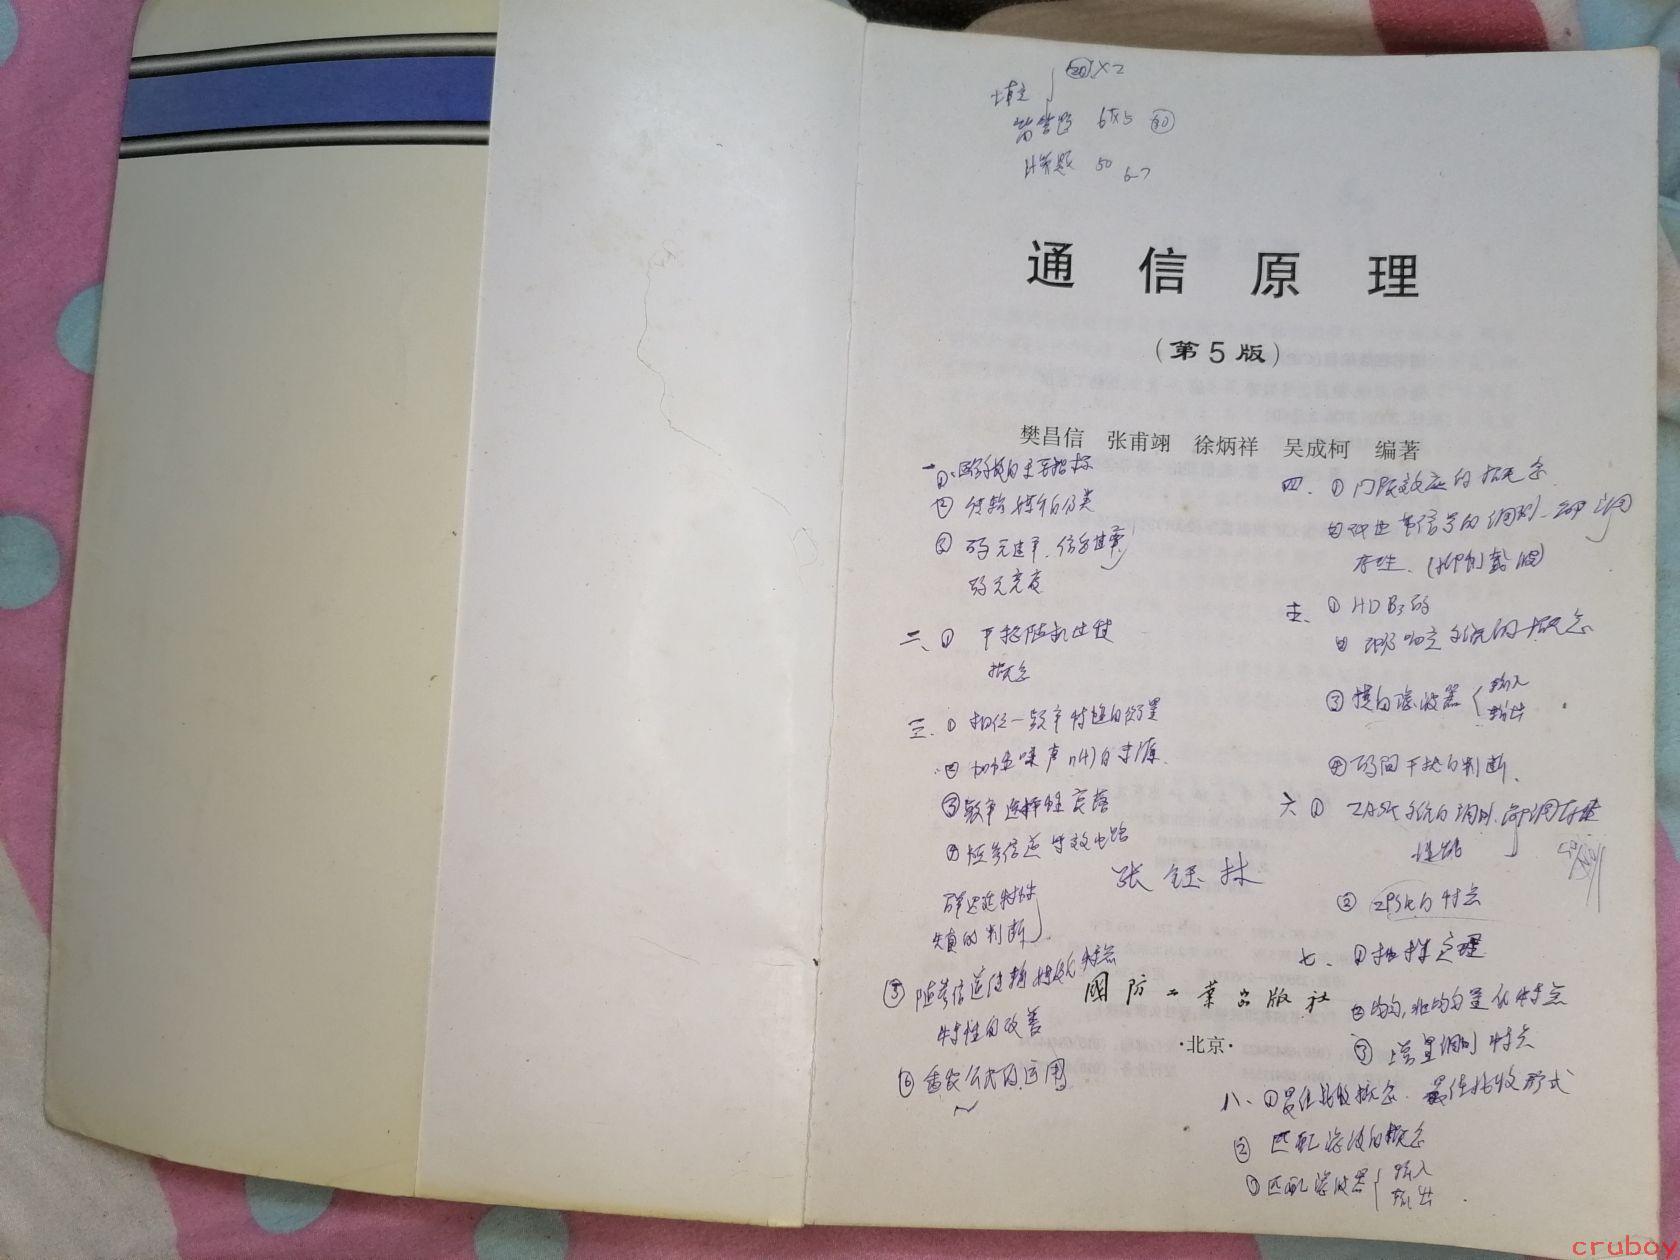 填空 ⑳×2
简答题 6×5 ㉚
计算题 50 6-7
通信原理
(第5版)
樊昌信 张甫翊 徐炳祥 吴成柯 编著
一、①
② 传输 的分类
③ 码元速率、信息速率
码元宽度
二、① 平稳随机过程
概念
三、① 相位—频率特性的衡量
② 加性噪声n(t)的来源
③ 频率选择性衰落
④ 恒参信道等效电路
群迟延特性
失真的判断
⑤ 随参信道传输 特点
特性的改善
⑥ 香农公式的运用
四、① 门限效应的概念
② 带信号的调制、解调
(抑制载波)
五、① HDB3码
② 部分响应系统的概念
③ 横向滤波器 输入 输出
④ 码间干扰的判断
六、① 2ASK系统的调制、解调
② 2PSK的特点
七、① 抽样定理
② 均匀,非均匀量化特点
③ 增量调制特点
八、① 最佳接收概念 最佳接收形式
② 匹配滤波的概念
③ 匹配滤波器 输入 输出
张钰林
国防工业出版社
·北京·
cruboy